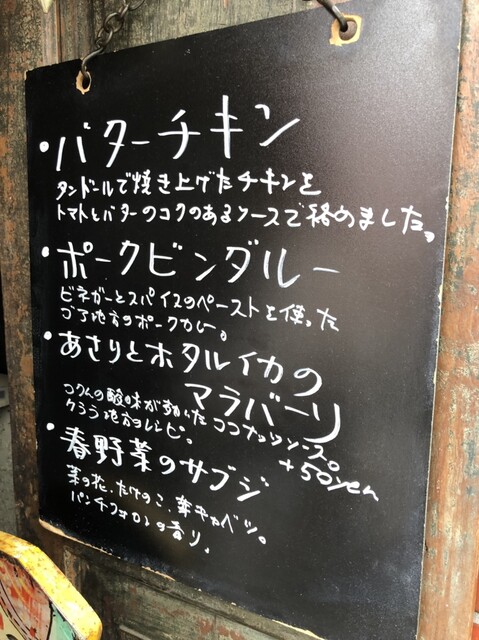 ・バターチキン
タンドールで焼き上げたチキンを
トマトとバターのコクのあるソースで絡めました。
・ポークビンダルー
ビネガーとスパイスのペーストを使った
ゴア地方のポークカレー。
・あさりとホタルイカの
マラバーリ
コクムの酸味が効いたココナッツソース。
ケララ地方のレシピ。
+50yen
・春野菜のサブジ
菜の花、たけのこ、春キャベツ。
パンチフォロンの香り。